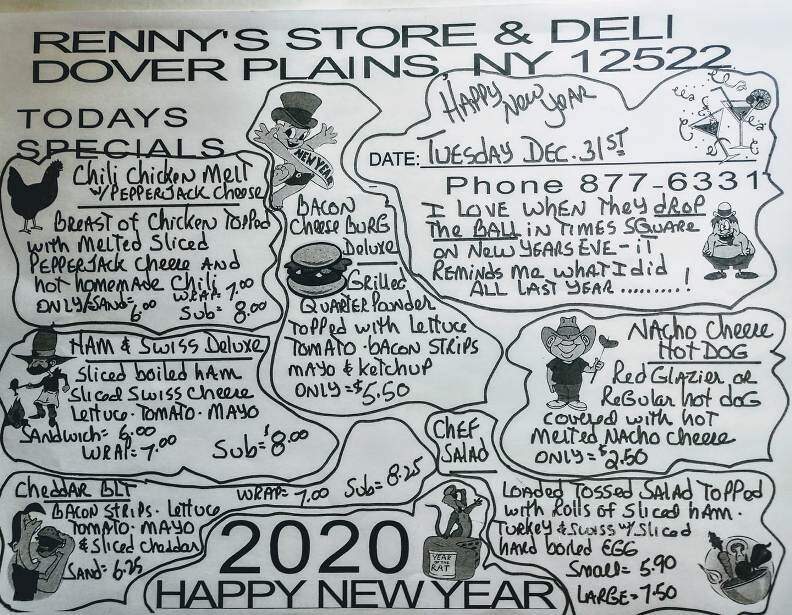 RENNY'S STORE & DELI
DOVER PLAINS, NY 12522
TODAYS
SPECIALS
HAPPY New year
DATE: TUESDAY DEC. 31ST
Phone 877-6331
I LOVE WHEN They DROP
The BALL in Times SQuare
on New YEARS EVE - iT
ReMINDS Me WHAT I did
ALL LAST YEAR .........!
Chili Chicken Melt
w/ PEPPERJACK Cheese
BreAST of Chicken Topped
with Melted Sliced
PEPPERJACK Cheese AND
hot homemade Chili
ONLY/SAND= 6.00 WRAP 7.00
Sub= 8.00
NEW YEAR
BACON
Cheese BURG
Deluxe
Grilled
QUARTER Pounder
Topped with Lettuce
TOMATO - BACON STRIPS
MAYO & Ketchup
ONLY = $5.50
HAM & Swiss Deluxe
Sliced boiled hAm
Sliced Swiss Cheese
Lettuce - TOMATO - MAYO
SANDwich= 6.00
WRAP= 7.00 Sub= $8.00
NAcho Cheese
HOT DOG
Red GlAzier or
ReGular hot doG
covered with hot
Melted NAcho Cheese
ONLY = $2.50
CheddAR BLT
BACON STRIPS - Lettuce
TOMATO - MAYO
& Sliced Cheddar
SAND= 6.25
WRAP= 7.00 Sub= 8.25
CHEF
SALAD
LOADED Tossed SALAD ToPPed
with Rolls of Sliced hAm -
Turkey & Swiss w/ Sliced
hard boiled EGG
Small= 5.90
LARGE= 7.50
YEAR
OF THE
RAT
2020
HAPPY NEW YEAR